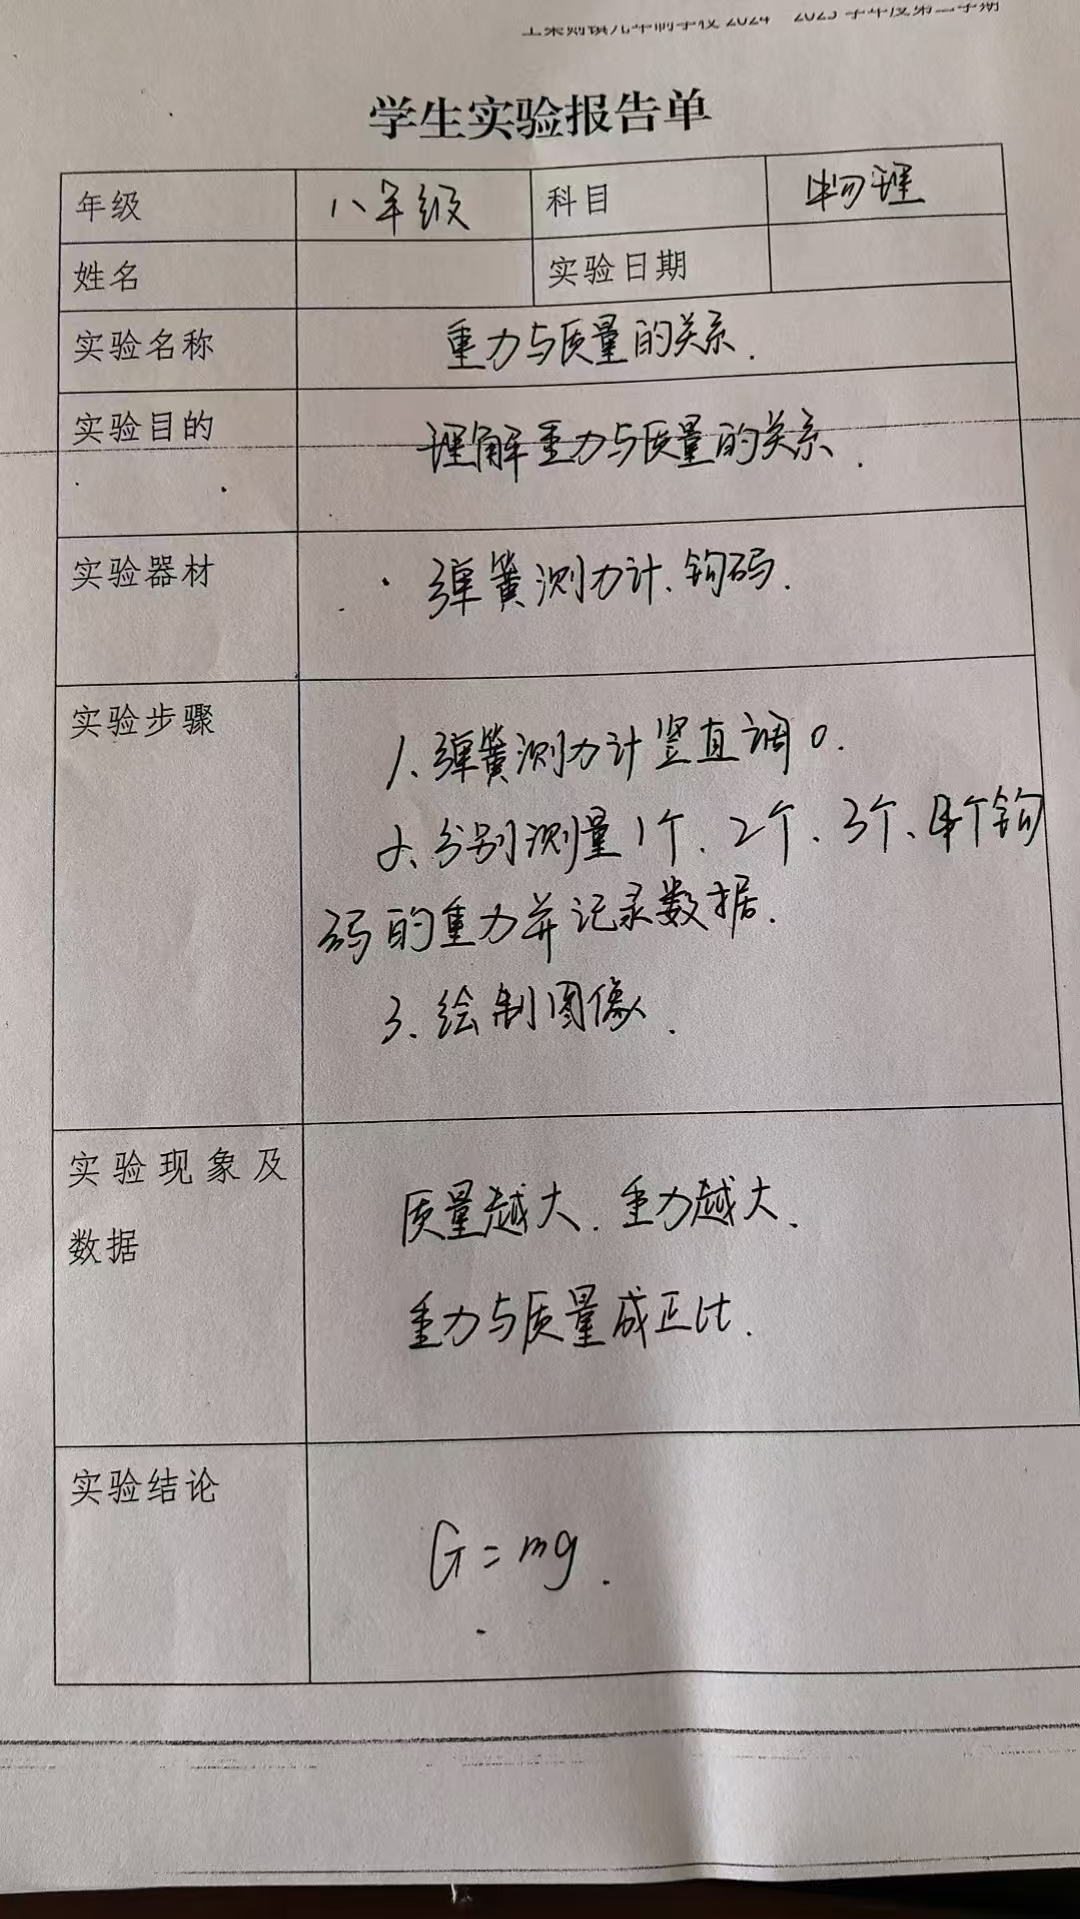 学年度第二学期
学生实验报告单
年级 八年级 科目 物理
姓名 实验日期
实验名称 重力与质量的关系.
实验目的 理解重力与质量的关系.
实验器材 弹簧测力计、钩码.
实验步骤
1、弹簧测力计竖直调0.
2、分别测量1个、2个、3个、4个钩
码的重力并记录数据.
3、绘制图像.
实验现象及
数据
质量越大、重力越大、
重力与质量成正比.
实验结论
G=mg.